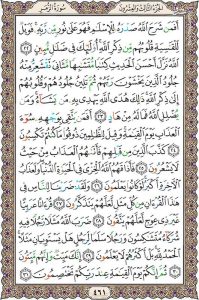 الجزء الثالث والعشرون سورة الزمر
أَفَمَن شَرَحَ ٱللَّهُ صَدْرَهُۥ لِلْإِسْلَٰمِ فَهُوَ عَلَىٰ نُورٍ مِّن رَّبِّهِۦ فَوَيْلٌ
لِّلْقَٰسِيَةِ قُلُوبُهُم مِّن ذِكْرِ ٱللَّهِ أُو۟لَٰٓئِكَ فِى ضَلَٰلٍ مُّبِينٍ ٢٢
ٱللَّهُ نَزَّلَ أَحْسَنَ ٱلْحَدِيثِ كِتَٰبًا مُّتَشَٰبِهًا مَّثَانِىَ تَقْشَعِرُّ مِنْهُ
جُلُودُ ٱلَّذِينَ يَخْشَوْنَ رَبَّهُمْ ثُمَّ تَلِينُ جُلُودُهُمْ وَقُلُوبُهُمْ
إِلَىٰ ذِكْرِ ٱللَّهِ ذَٰلِكَ هُدَى ٱللَّهِ يَهْدِى بِهِۦ مَن يَشَآءُ وَمَن
يُضْلِلِ ٱللَّهُ فَمَا لَهُۥ مِنْ هَادٍ ٢٣ أَفَمَن يَتَّقِى بِوَجْهِهِۦ سُوٓءَ
ٱلْعَذَابِ يَوْمَ ٱلْقِيَٰمَةِ وَقِيلَ لِلظَّٰلِمِينَ ذُوقُوا۟ مَا كُنتُمْ تَكْسِبُونَ
٢٤ كَذَّبَ ٱلَّذِينَ مِن قَبْلِهِمْ فَأَتَىٰهُمُ ٱلْعَذَابُ مِنْ حَيْثُ
لَا يَشْعُرُونَ ٢٥ فَأَذَاقَهُمُ ٱللَّهُ ٱلْخِزْىَ فِى ٱلْحَيَوٰةِ ٱلدُّنْيَا وَلَعَذَابُ
ٱلْءَاخِرَةِ أَكْبَرُ لَوْ كَانُوا۟ يَعْلَمُونَ ٢٦ وَلَقَدْ ضَرَبْنَا لِلنَّاسِ فِى
هَٰذَا ٱلْقُرْءَانِ مِن كُلِّ مَثَلٍ لَّعَلَّهُمْ يَتَذَكَّرُونَ ٢٧ قُرْءَانًا عَرَبِيًّا
غَيْرَ ذِى عِوَجٍ لَّعَلَّهُمْ يَتَّقُونَ ٢٨ ضَرَبَ ٱللَّهُ مَثَلًا رَّجُلًا فِيهِ
شُرَكَآءُ مُتَشَٰكِسُونَ وَرَجُلًا سَلَمًا لِّرَجُلٍ هَلْ يَسْتَوِيَانِ مَثَلًا
ٱلْحَمْدُ لِلَّهِ بَلْ أَكْثَرُهُمْ لَا يَعْلَمُونَ ٢٩ إِنَّكَ مَيِّتٌ وَإِنَّهُم مَّيِّتُونَ
٣٠ ثُمَّ إِنَّكُمْ يَوْمَ ٱلْقِيَٰمَةِ عِندَ رَبِّكُمْ تَخْتَصِمُونَ ٣١
٤٦١